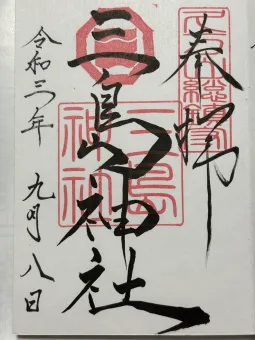 奉拝
三島神社
令和三年 九月 八日
三島
神社